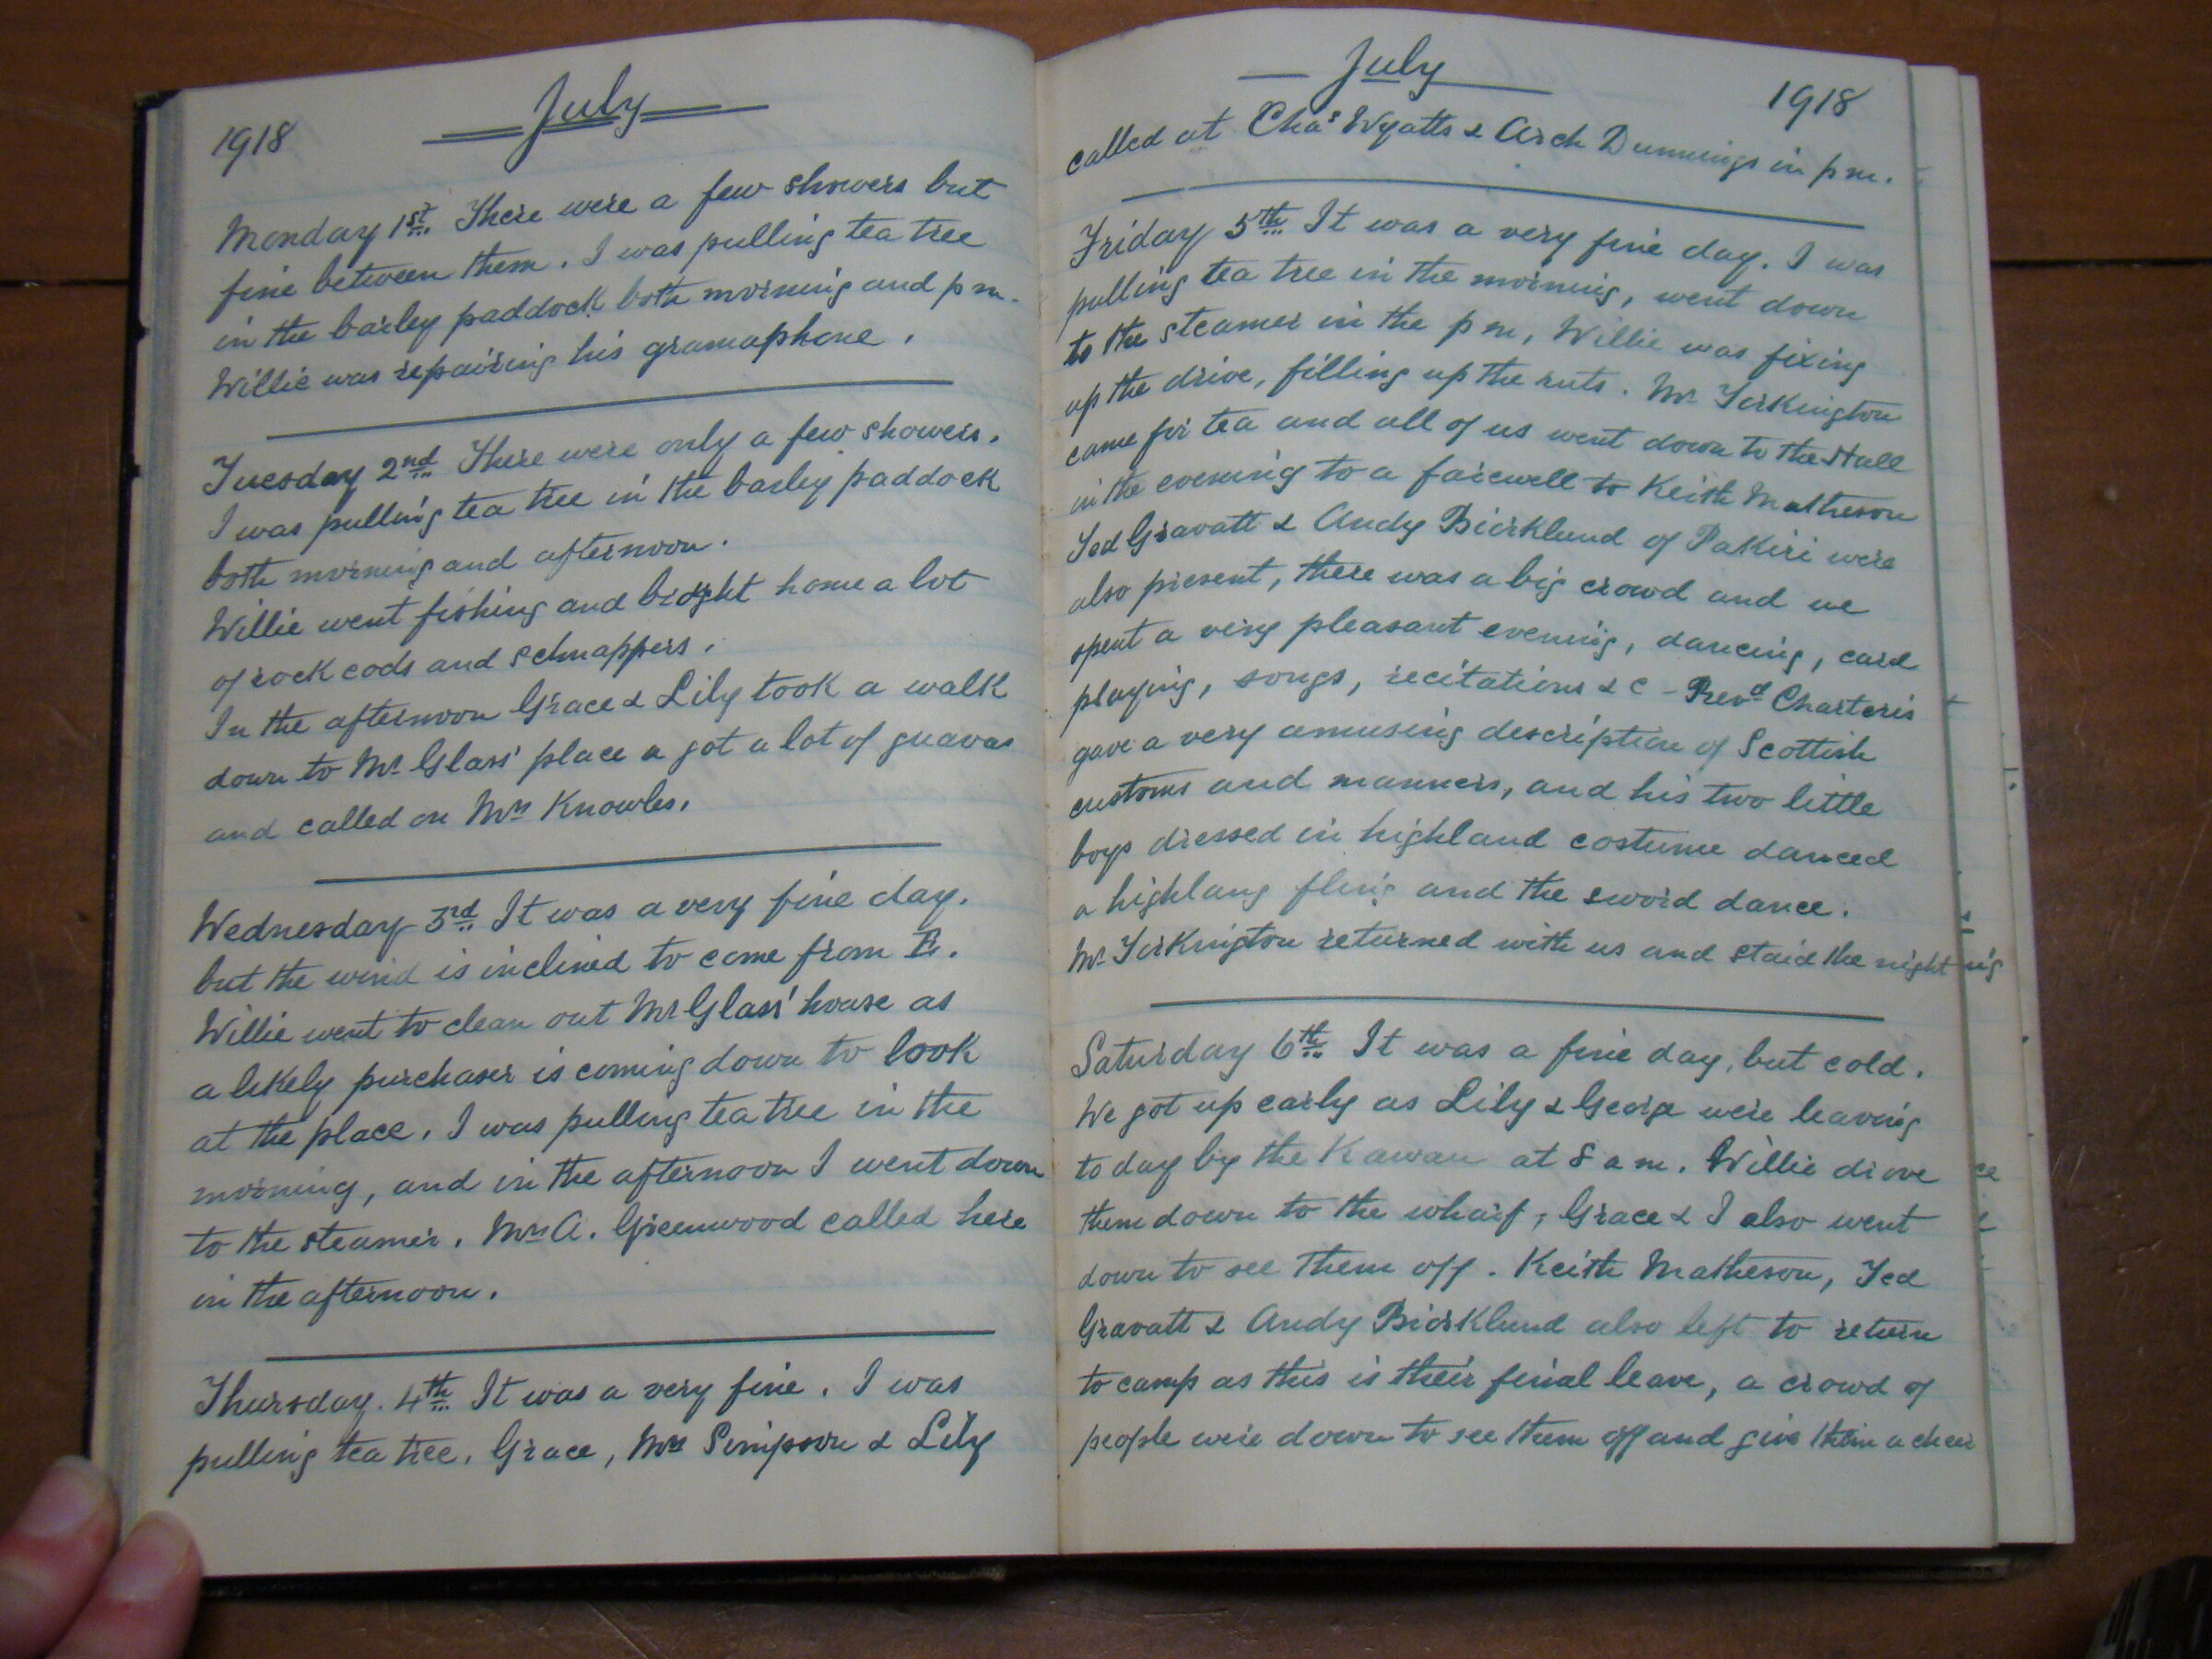 1918
July
Monday 1st There were a few showers but
fine between them. I was pulling tea tree
in the barley paddock both morning and pm.
Willie was repairing his gramaphone.
Tuesday 2nd There were only a few showers.
I was pulling tea tree in the barley paddock
both morning and afternoon.
Willie went fishing and bro't home a lot
of rock cods and schnappers.
In the afternoon Grace & Lily took a walk
down to Mr Glass' place a got a lot of guavas
and called on Mrs Knowles.
Wednesday 3rd It was a very fine day.
but the wind is inclined to come from E.
Willie went to clean out Mr Glass' house as
a likely purchaser is coming down to look
at the place. I was pulling tea tree in the
morning, and in the afternoon I went down
to the steamer. Mrs A. Greenwood called here
in the afternoon.
Thursday. 4th It was a very fine. I was
pulling tea tree. Grace, Mrs Simpson & Lily
July
1918
called at Chas Wyatts & Arch Dunnings in pm.
Friday 5th It was a very fine day. I was
pulling tea tree in the morning, went down
to the steamer in the pm, Willie was fixing
up the drive, filling up the ruts. Mr Torkington
came for tea and all of us went down to the Hall
in the evening to a farewell to Keith Matheson
Ted Gravatt & Andy Biorklund of Pakiri were
also present, there was a big crowd and we
spent a very pleasant evening, dancing, card
playing, songs, recitations &c - Revd Charteris
gave a very amusing description of Scottish
customs and manners, and his two little
boys dressed in highland costume danced
a highlang fling and the sword dance.
Mr Torkington returned with us and staid the night
Saturday 6th It was a fine day, but cold.
We got up early as Lily & George were leaving
to day by the Kawau at 8 am. Willie drove
them down to the wharf, Grace & I also went
down to see them off. Keith Matheson, Ted
Gravatt & Andy Biorklund also left to return
to camp as this is their finial leave, a crowd of
people were down to see them off and give them a cheer